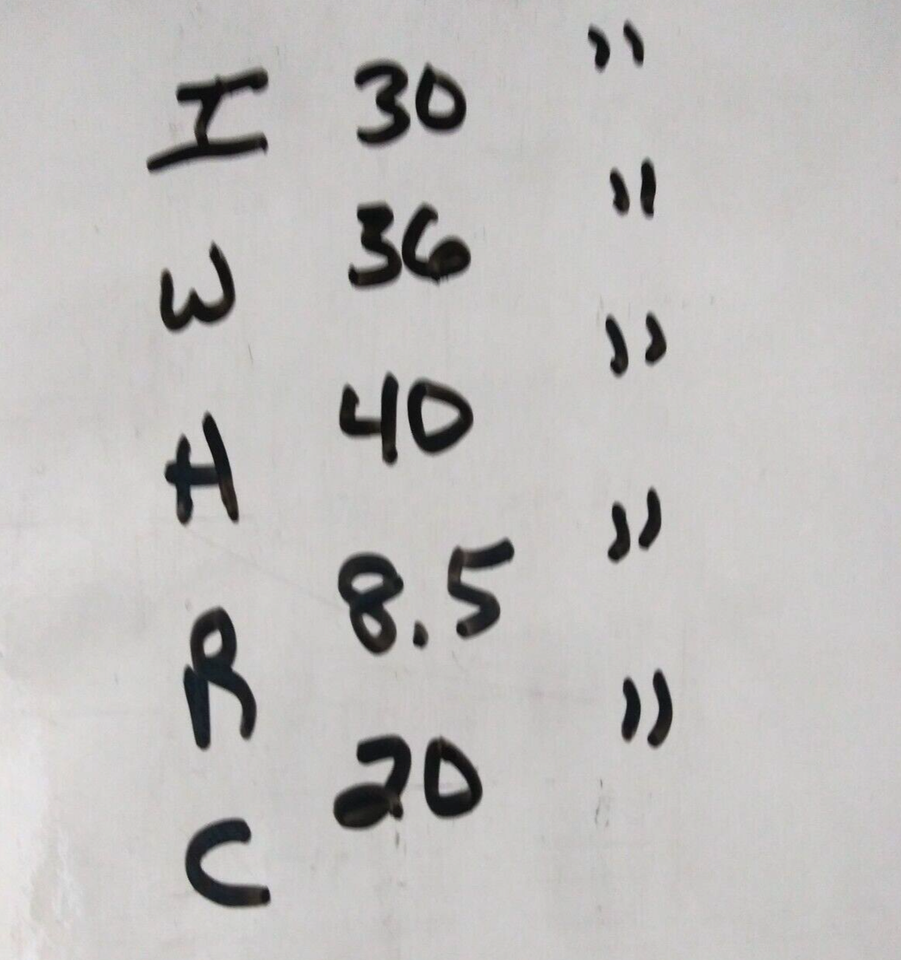 I 30 "
W 36 "
H 40 "
R 8.5 "
C 20 "